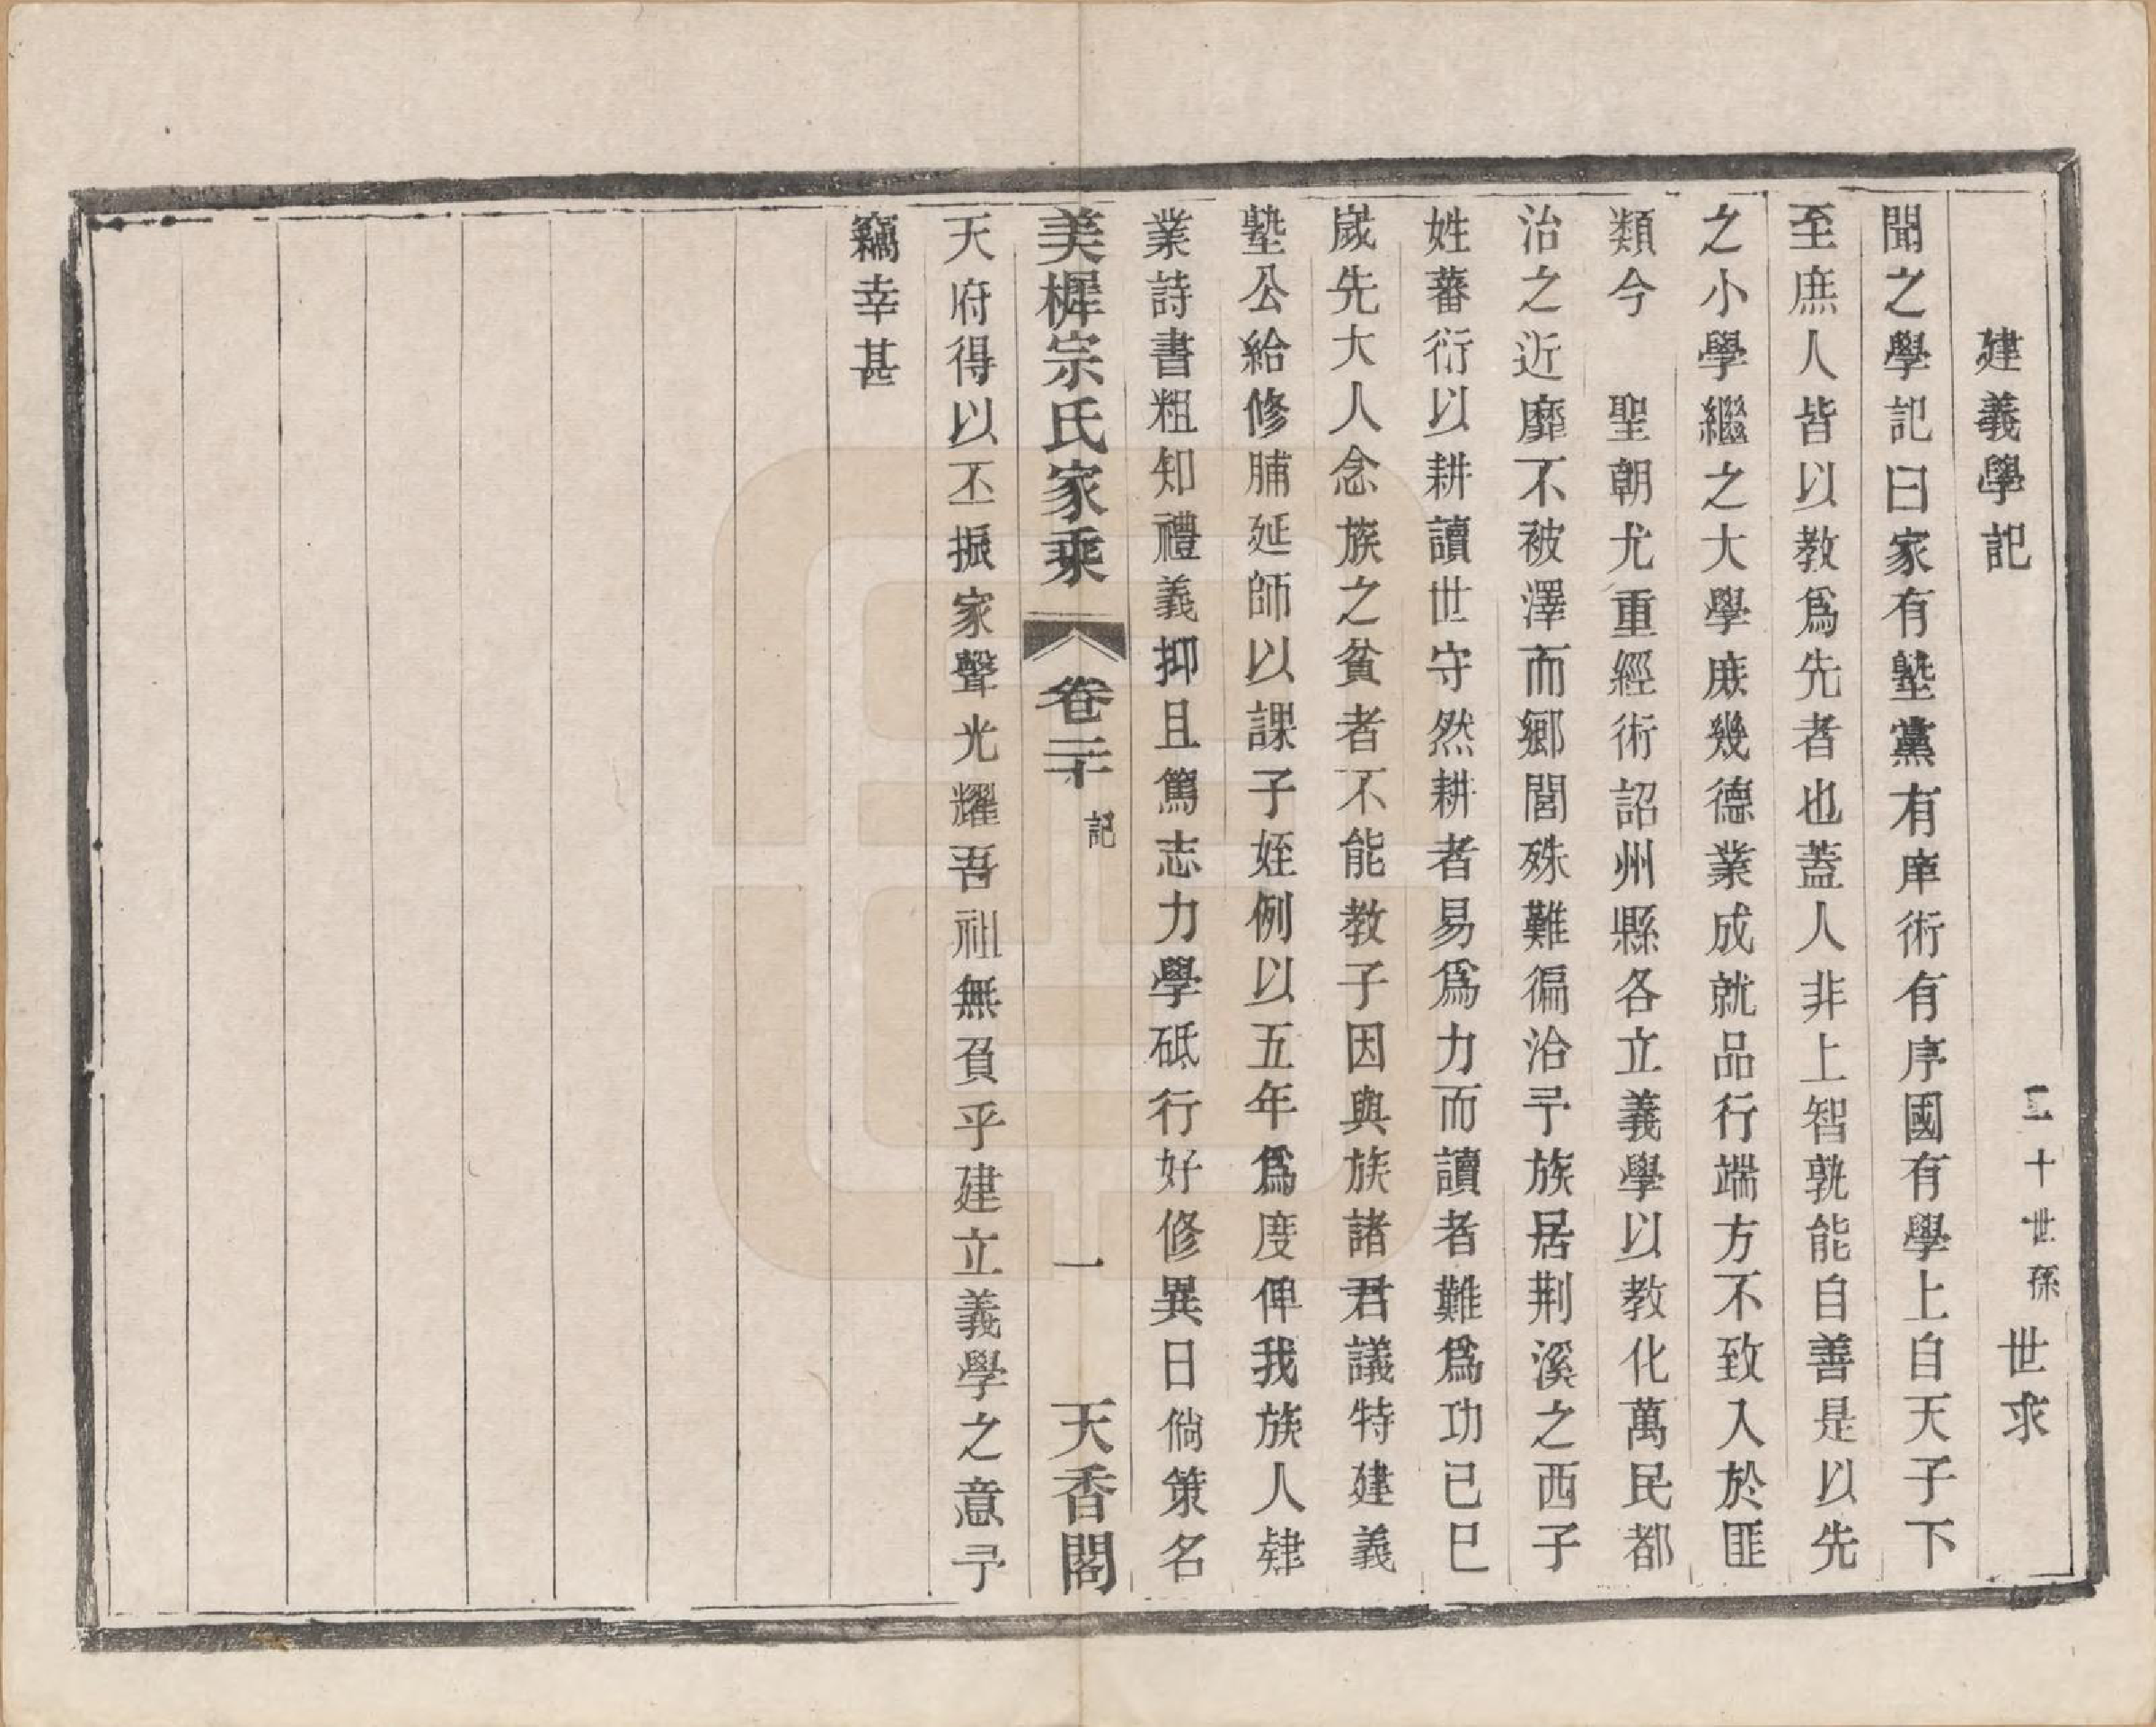 建義學記　二十世孫　世求
聞之學記曰家有塾黨有庠術有序國有學上自天子下
至庶人皆以教爲先者也蓋人非上智孰能自善是以先
之小學繼之大學庶幾德業成就品行端方不致入於匪
類今　聖朝尤重經術詔州縣各立義學以教化萬民都
治之近靡不被澤而鄉閭殊難徧洽予族居荆溪之西子
姓蕃衍以耕讀世守然耕者易爲力而讀者難爲功己巳
歲先大人念族之貧者不能教子因與族諸君議特建義
塾公給修脯延師以課子姪例以五年爲度俾我族人肄
業詩書粗知禮義抑且篤志力學砥行好修異日倘策名
美樨宗氏家乘　卷二十　記　一　天香閣
天府得以丕振家聲光耀吾祖無負乎建立義學之意予
竊幸甚